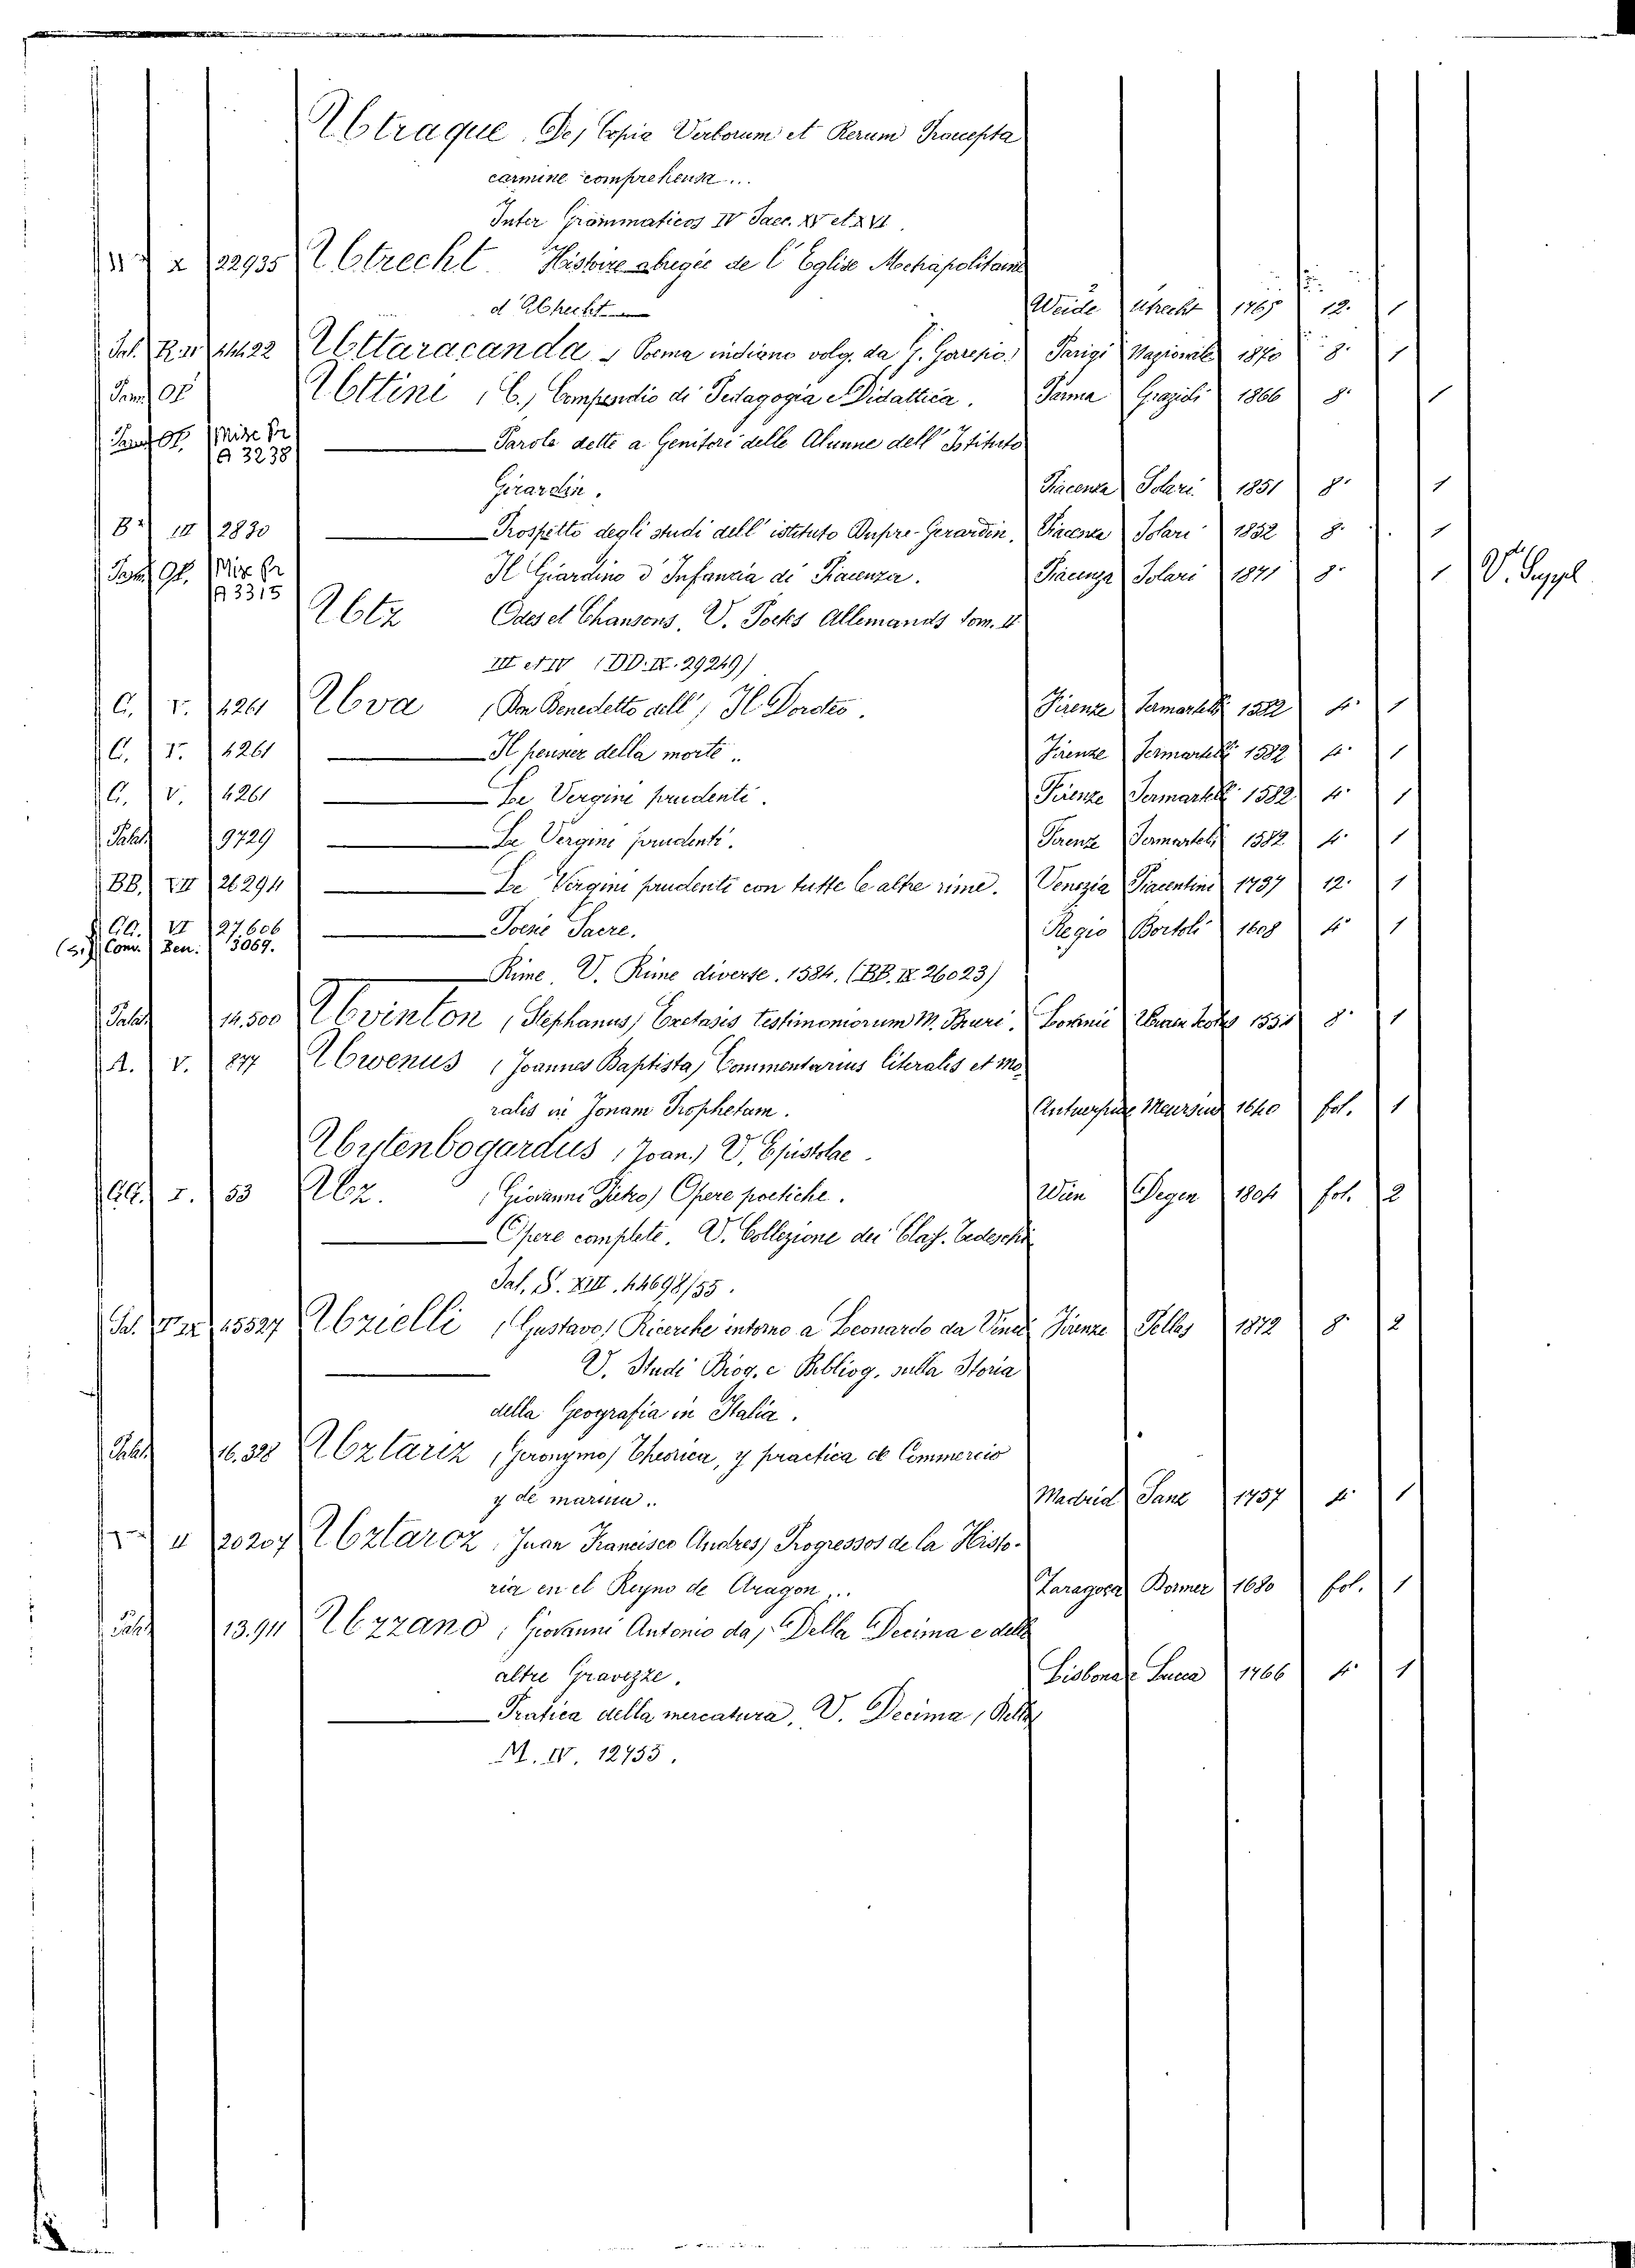 Utraque, De, Copia Verborum et Rerum Praecepta
carmine comprehensa...
Inter Grammaticos IV Saec. XV et XVI.
X 22935 Utrecht. Histoire abregée de l'Eglise Metropolitaine
d'Utrecht Weide Utrecht 1765 12. 1
Pal. R. 44422 Uttaracanda, Poema indiano volg. da G. Gorresio. Parigi Nazionale 1870 8. 1
Uttini, C., Compendio di Pedagogia e Didattica. Parma Grazioli 1866 8. 1
A 3238 Parole dette a Genitori delle Alunne dell'Istituto
Girardin. Piacenza Solari 1851 8. 1
III 2830 Prospetto degli studi dell'istituto Dupré-Gerardin. Piacenza Solari 1852 8. 1
A 3315 Il Giardino d'Infanzia di Piacenza. Piacenza Solari 1871 8. 1 V. Suppl
Utz Odes et Chansons. V. Poets Allemands tom. II
III et IV (DD. IX. 29249)
C. V. 4261 Uva (Don Benedetto dell') Il Doroteo. Firenze Sermartelli 1582 4. 1
C. V. 4261 Il penser della morte.. Firenze Sermartelli 1582 4. 1
C. V. 4261 Le Vergine prudenti. Firenze Sermartelli 1582 4. 1
Palat. 9729 Le Vergini prudenti. Firenze Sermartelli 1582 4. 1
BB. VII 26294 Le Vergini prudenti con tutte le altre rime. Venezia Piacentini 1737 12. 1
VI 27606 Poesie Sacre. Regio Bortoli 1608 4. 1
Conv. 3069.
Rime. V. Rime diverse. 1584. (BB. IX 26023)
Palat. 14.500 Uvinton (Stephanus) Exetasis testimoniorum M. Buceri. Lovanii 8. 1
A. V. 877 Uwenus (Joannes Baptista) Commentarius literalis et mo
ralis in Jonam Prophetam. Antuerpiae Meursius 1640 fol. 1
Uytenbogardus (Joan.) V. Epistolae.
I. 53 Uz. (Giovanni Pietro) Opere poetiche. Wien Degen 1804 fol. 2
Opere complete. V. Collezione dei Class. Tedeschi
Pal. S. XIII. 44698/55.
45527 Uzielli (Gustavo) Ricerche intorno a Leonardo da Vinci Firenze Pellas 1872 8. 2
V. Studi Biog. e Bibliog. sulla Storia
della Geografia in Italia.
Palat. 16.328 Uztariz (Geronymo) Theorica, y practica de Commercio
y de marina.. Madrid Sanz 1757 4. 1
II 20207 Uztaroz (Juan Francisco Andres) Progressos de la Histo-
ria en el Reyno de Aragon... Zaragoza Dormer 1680 fol. 1
Palat. 13.911 Uzzano (Giovanni Antonio da) Della Decima e delle
altre Gravezze. Lisbona e Lucca 1766 4. 1
Pratica della mercatura. V. Decima (Della)
M. IV. 12753.